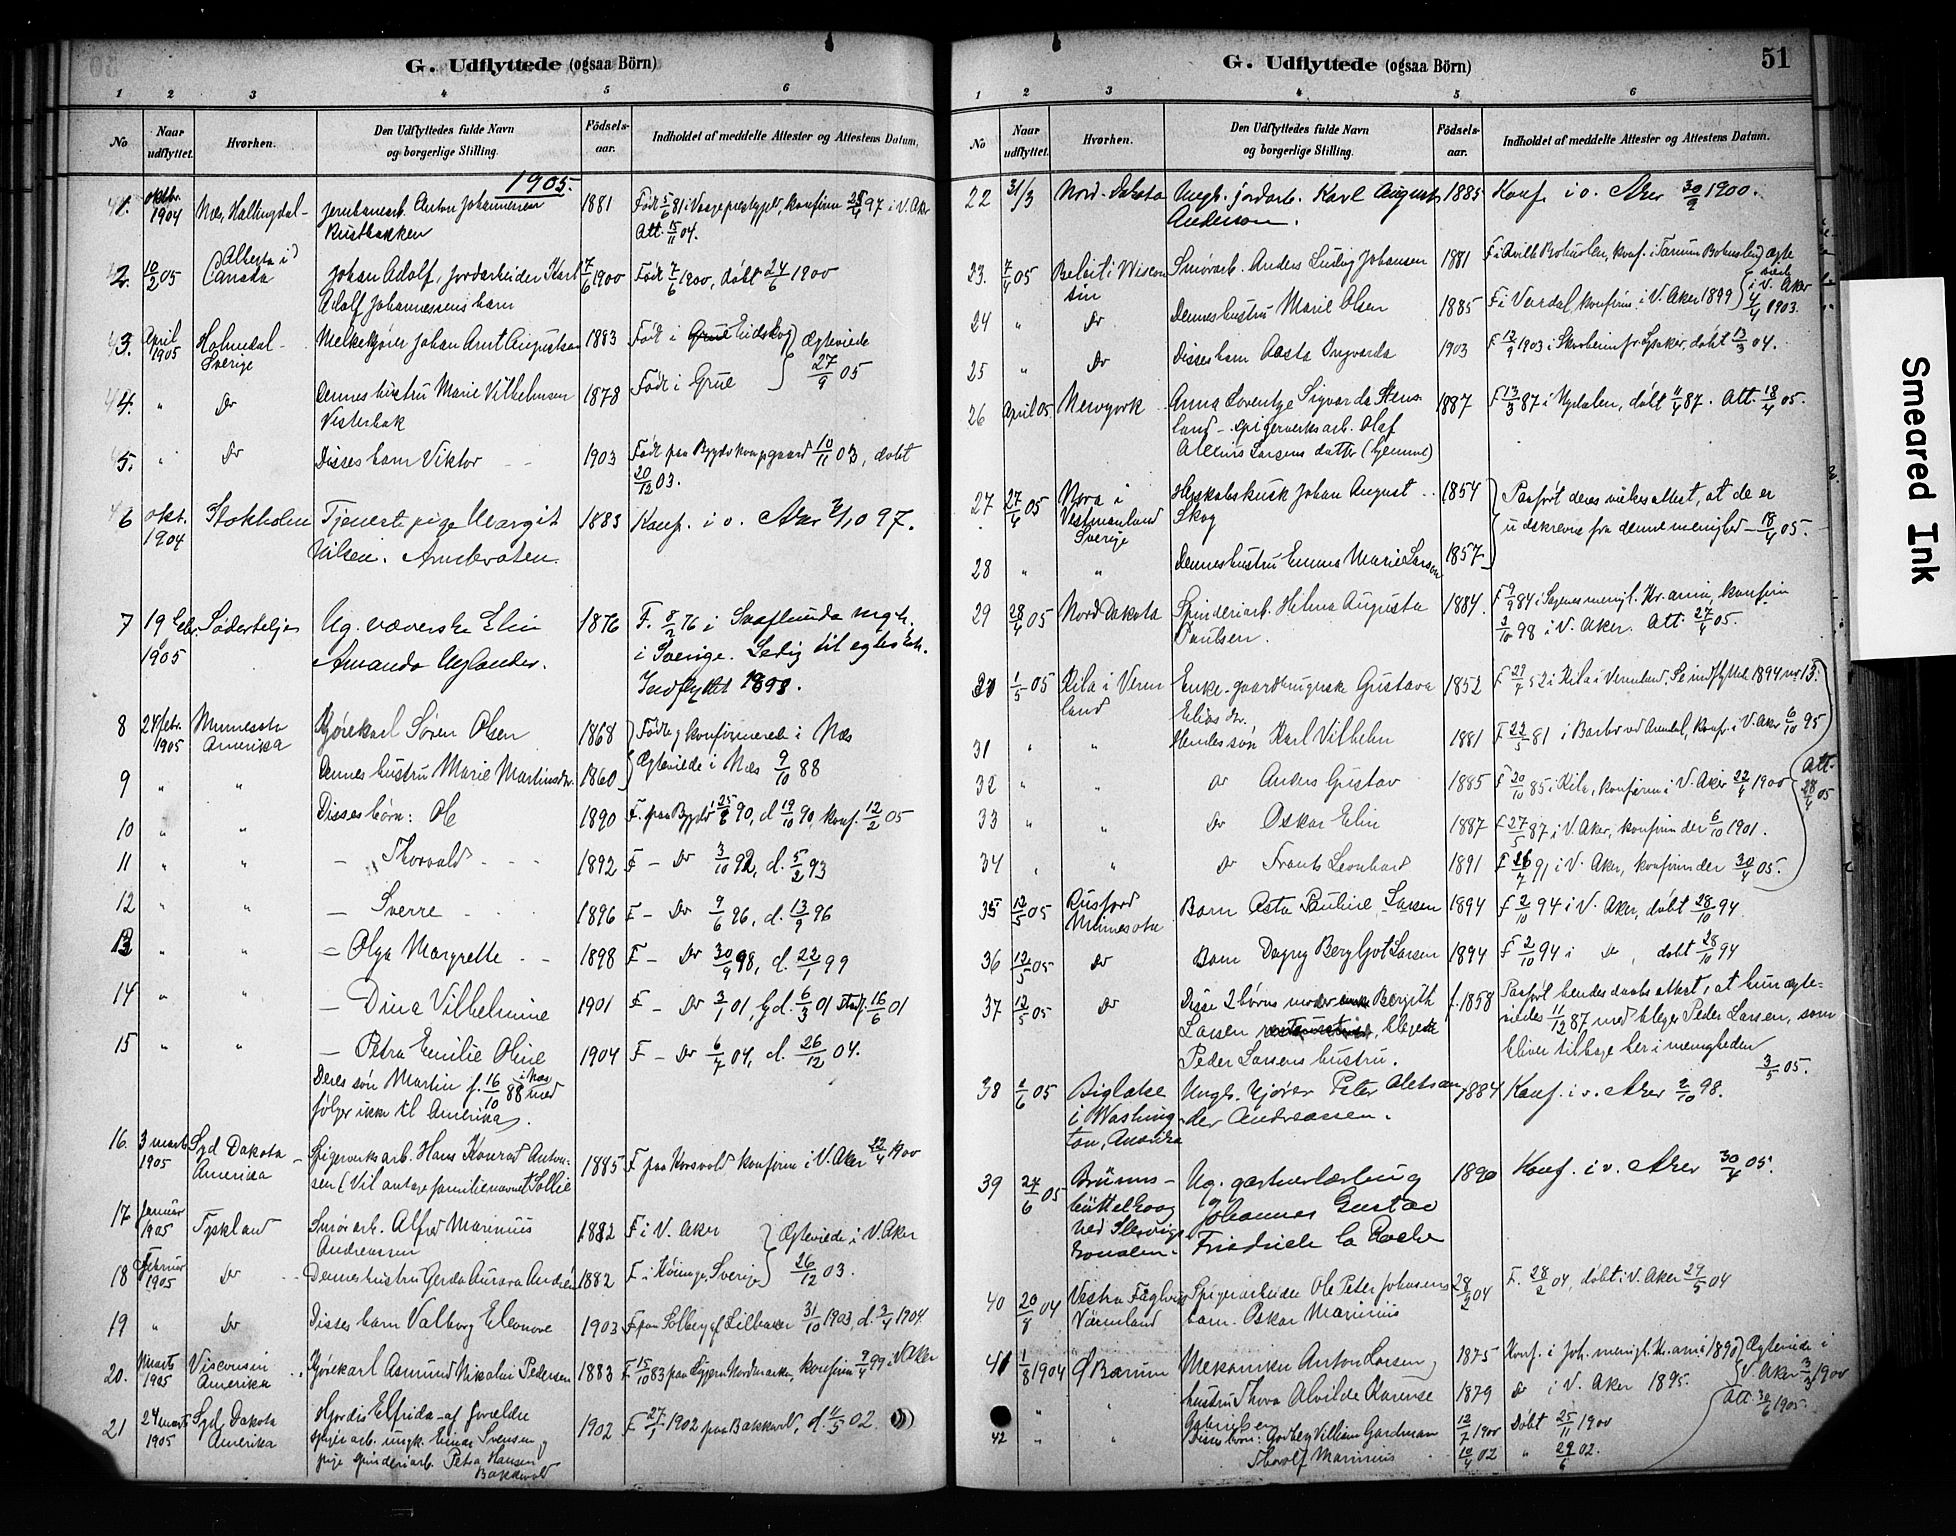 G. Udflyttede (ogsaa Börn)
1 2 3 4 5 6
No
Naar udflyttet.
Hvorhen.
Den Udflyttedes fulde Navn og borgerlige Stilling.
Födsels-aar.
Indholdet af meddelte Attester og Attestens Datum.
1905.
1. oktbr. 1904 Næs, Hallingdal Jernbanearb. Anton Johannesen 1881 Født 5/6 81 i Vaage prestegj., konfirm 25/4 97 i V. Aker
Rustbakken Att. 15/11 04.
2. 10/2 05 Alberta i Canada Johan Adolf, jordarbeider Karl 7/6 1900 Født 7/6 1900, døbt 24/6 1900
Adolf Johannessens barn
3. April 1905 Holmedal Sverige Melkekjører Johan Arnt Augustsen 1883 Født i Eidskog } Ægteviede
4. " Do Dennes hustru Marie Vilhelmsen 1878 Født i Grue } 27/9 05
Vesterbak
5. " Do Disses barn Viktor 1903 Født paa Bygdø kongsgaard 10/11 03, døbt
20/12 03.
6 okt. 1904 Stokholm Tjenestepige Margit 1883 Konf. i v. Aker 3/10 97.
Nilsen.
7 19 febr. 1905 Södertelje Ug. væverske Elin 1876 F. 8/2 76 i
Amanda Nylander. i Sverige. Ledig til egtesk.
Indflyttet 1898.
8 24 febr. 1905 Minnesota Amerika Kjørekarl Søren Olsen 1868 Født og konfirmerede i Næs
9 " " Dennes hustru Marie Martinsdr. 1860 Ægteviede i Næs 9/10 88
10 " " Disses børn: Ole 1890 F. paa Bygdø 25/8 90, d. 19/10 90, konf. 12/2 05
11 " " — Thorvald 1892 F — Do 3/10 92, d. 5/2 93
12 " " — Sverre 1896 F — Do 9/6 96, d. 13/9 96
13 " " — Olga Margrethe 1898 F — Do 30/9 98, d. 22/1 99
14 " " — Dina Vilhelmine 1901 F — Do 3/1 01, hjd. 6/3 01 stadf. 16/6 01
15 " " — Petra Emilie Oline 1904 F — Do 6/7 04, d. 26/12 04.
Deres søn Martin f. 16/10 88 i Næs med
følger ikke til Amerika.
16. 3 marts 1905 Syd Dakota Amerika Spigerverksarb. Hans Konrad Anton- 1885 F paa Korsvold konfirm i V. Aker 22/4 1900
sen (Vil antage familienavnet Sollie
17 Januar 1905 Tyskland Smørarb. Alfred Marinius 1882 F i V. Aker } Ægteviede i V. Aker
Andreassen
18 Februar 1905 Do Dennes hustru Gerda Aurora Andrén 1882 F i Höinge, Sverige } 26/12 03.
19 " Do Disses barn Valborg Eleonore 1903 F paa Solberg Lilleaker 31/10 1903, d. 3/4 1904.
20. Marts 1905 Visconsin Amerika Kjørekarl Asmund Nikolai Pedersen 1883 F 15/10 83 paa Nordmarken, konfirm 9/4 99 i V. Aker
21 24 marts 1905 Syd Dakota Amerika Hjordis Elfrida – af forældre 1902 F 27/1 1902 paa Bakkevold, d. 4/5 02.
spigerarb. ungk. Einar Svensen og
pige spinderiarb. Petra Hansen
Bakkevold
G. Udflyttede (ogsaa Börn)
51
1 2 3 4 5 6
No
Naar udflyttet.
Hvorhen.
Den Udflyttedes fulde Navn og borgerlige Stilling.
Födsels-aar.
Indholdet af meddelte Attester og Attestens Datum.
22 31/3 Nord-Dakota Ungk. jordarb. Karl August 1885 Konf. i v. Aker 30/9 1900.
Anderson.
23. 7/4 05 Beloit i Wiscon sin Smørarb. Anders Ludvig Johansen 1881 konf. i Tanum Bohuslen
24 " Do Dennes hustru Marie Olsen 1885 F i Verdal, konfirm. i V. Aker 1899 } i V. Aker 4/4 1903.
25 " Do Disses barn Aasta Ingvarda 1903 F 12/9 1903 i Lysaker, døbt 13/3 04.
26 April 05 Newyork Anna Loventze Sigvarda Stens- 1887 F 13/3 87 i Nydalen, døbt 11/4 87. Att. 18/4 05.
land – spigerverksarb. Olaf
Larsens datter (hjemme)
27 27/4 05 Nora i Vestmanland Sverige Herskabskusk Johan August 1854 Paaført deres vielsesattest, at de er
Skog udskrevne fra denne menighed – 18/4 05.
28 " " Dennes hustru Emma Marie Larson 1857
29 28/4 05 Nord Dakota Spinderiarb. Helma Augusta 1884. F 9/9 84 i Sagenes menigh. Kr.ania, konfirm
Paulsen. 2/10 98 i V. Aker. Att. 27/4 05.
30 1/5 05 Kila i Verm land Enke – Gustava 1852 F 29/4 52 i Kila i Vermland. Se indflyttet 1894 nr. 13.
Elias dr.
31 " " Hendes søn Karl Vilhelm 1881 F 22/5 81 i Barbu ved Arendal, Konf. i V. Aker 6/10 95
32 " " Do Anders Gustav 1885 F 20/10 85 i Kila, konfirm i V. Aker 22/4 1900 Att. 28/4 05
33 " " Do Oskar Elin 1887 F 27/5 87 i V. Aker, konfirm der 6/10 1901.
34 " " Do Frants Leonhard 1891 F 26/7 91 i V. Aker, konfirm der 30/4 05.
35 12/5 05 Rusford Minnesota Barn Asta Pauline Larsen 1894 F 2/10 94 i V. Aker, døbt 28/10 94.
36 12/5 05 Do Barn Dagny Bergljot Larsen 1894 F 2/10 94 i Do, døbt 28/10 94
37 12/5 05 Do Disse 2 børns moder Bergith f. 1858 Paaført hendes daabsattest, at hun ægte-
Larsen, viedes 11/12 87, med Peder Larsen, som
Peder Larsens hustru. bliver tilbage her i menigheden
3/5 05.
38 1/6 05 Biglake i Washing ton, Amerika Ungk. kjører Peter Aleksan 1884 Konf. i v. Aker 2/10 98.
der Andreassen.
39 27/6 05 Brüns- büttelkoog ved Slesvigs Ug. gartnerlærling 1890 Konf. i v. Aker 30/4 05.
Johannes Gustav
Friedrich la Roche
40 20/8 04 Vestra Värmland Spigerarbeider Ole Peter Johnsens 28/2 04 F. 28/2 04, døbt i V. Aker 29/5 04
barn. Oskar Marinius
41 1/8 1904 Ø Bærum Mekaniker Anton Larsen og 1875 Konf. i Joh. menigh. Kr.ania 1890 } Ægteviede i
" " hustru Thora Alvilde Karense 1879 Do i V. Aker 1895. } V. Aker 3/3 1900
Gabrielsen Att. 30/6 1905.
42 " " Disses børn: Godberg Villiam Gardman 12/7 1900 Døbt 25/11 1900
Thorolf Marinius 10/4 02 " 29/6 02.
Smeared Ink